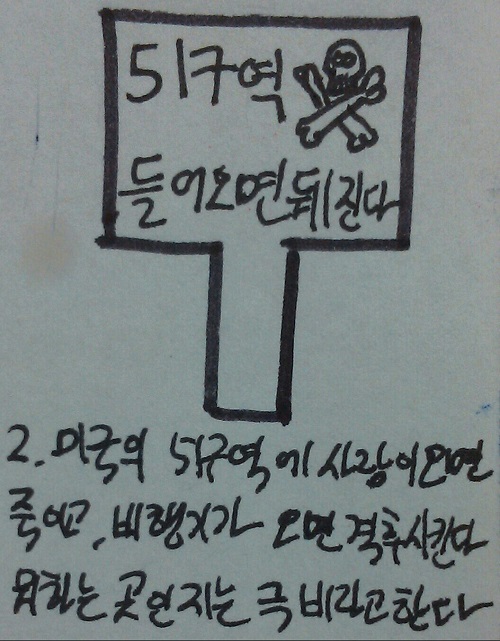 51구역
들어오면 뒈진다
2. 미국의 51구역에 사람이 오면
죽이고, 비행기가 오면 격추시킨다
뭐하는 곳인지는 극비라고한다